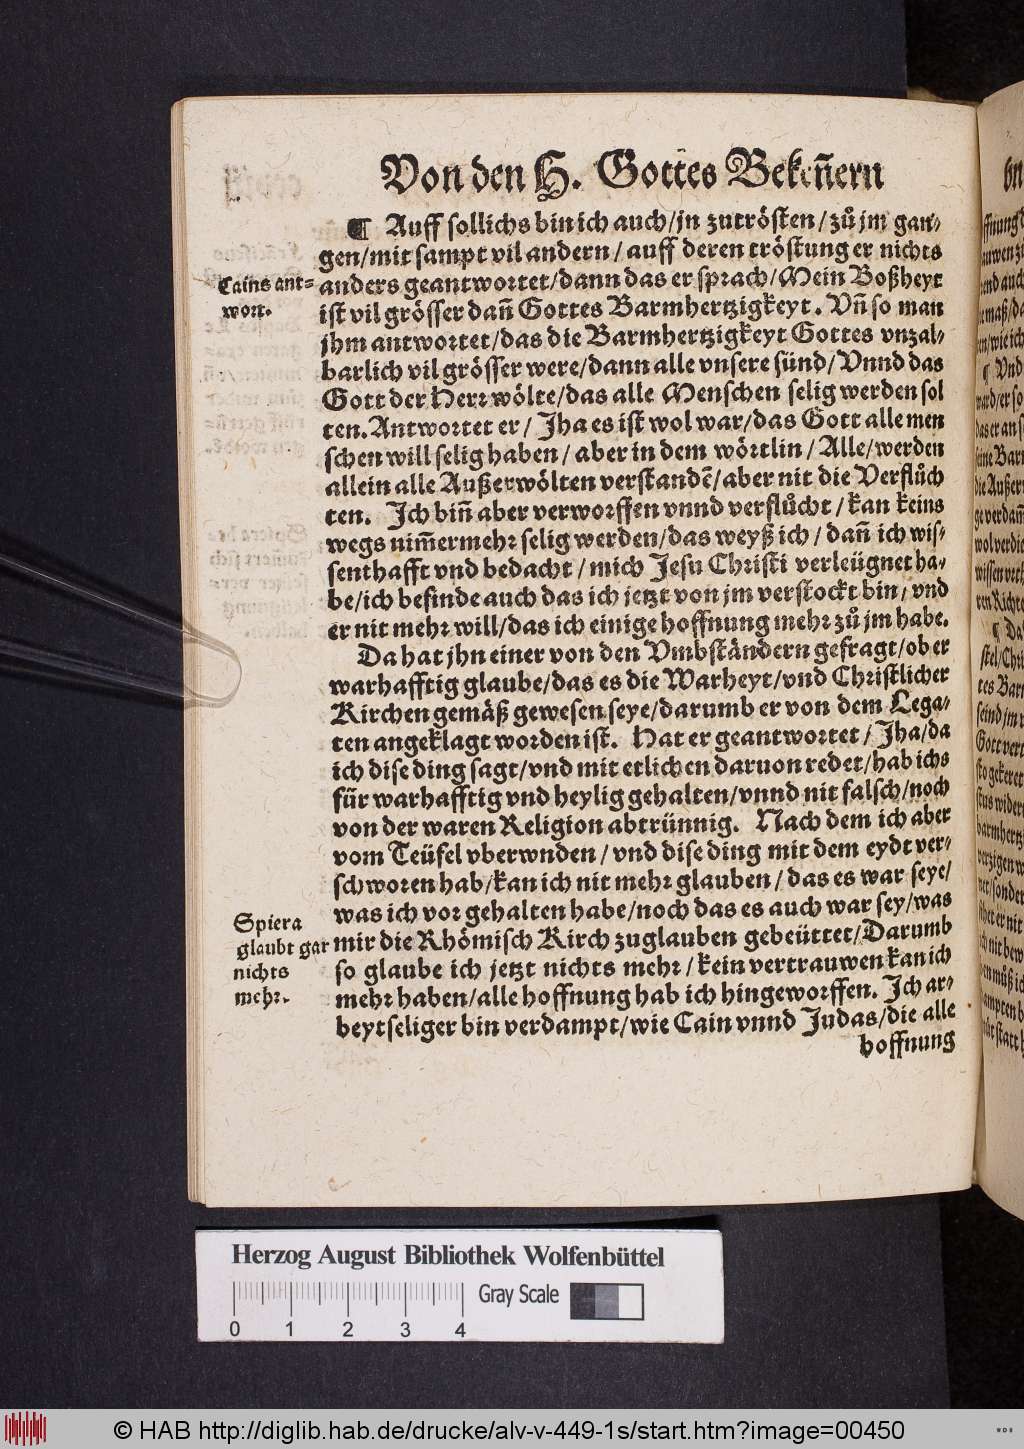 Von den H. Gottes Bekeñern
¶ Auff sollichs bin ich auch/jn zutrösten/zů jm gan-
gen/mit sampt vil andern/auff deren tröstung er nichts
Cains ant=
wort.
anders geantwortet/dann das er sprach/Mein Boßheyt
ist vil grösser dañ Gottes Barmhertzigkeyt. Vñ so man
jhm antwortet/das die Barmhertzigkeyt Gottes vnzal-
barlich vil grösser were/dann alle vnsere sünd/Vnnd das
Gott der Herr wölte/das alle Menschen selig werden sol
ten. Antwortet er/Jha es ist wol war/das Gott alle men
schen will selig haben/aber in dem wörtlin/Alle/werden
allein alle Außerwölten verstandē/aber nit die Verflůch
ten. Ich biñ aber verworffen vnnd verflůcht/kan keins
wegs nim̄ermehr selig werden/das weyß ich/dañ ich wis-
senthafft vnd bedacht/mich Jesu Christi verleügnet ha-
be/ich befinde auch das ich jetzt von jm verstockt bin/vnd
er nit mehr will/das ich einige hoffnung mehr zů jm habe.
Da hat jhn einer von den Vmbständern gefragt/ob er
warhafftig glaube/das es die Warheyt/vnd Christlicher
Kirchen gemäß gewesen seye/darumb er von dem Lega-
ten angeklagt worden ist. Hat er geantwortet/Jha/da
ich dise ding sagt/vnd mit etlichen daruon redet/hab ichs
für warhafftig vnd heylig gehalten/vnnd nit falsch/noch
von der waren Religion abtrünnig. Nach dem ich aber
vom Teüfel vberwnden/vnd dise ding mit dem eydt ver-
schworen hab/kan ich nit mehr glauben/das es war seye/
was ich vor gehalten habe/noch das es auch war sey/was
Spiera
glaubt gar
nichts
mehr.
mir die Rhömisch Kirch zuglauben gebeüttet/Darumb
so glaube ich jetzt nichts mehr/kein vertrauwen kan ich
mehr haben/alle hoffnung hab ich hingeworffen. Ich ar-
beytseliger bin verdampt/wie Cain vnnd Judas/die alle
hoffnung
Herzog August Bibliothek Wolfenbüttel
Gray Scale
0 1 2 3 4
© HAB http://diglib.hab.de/drucke/alv-v-449-1s/start.htm?image=00450